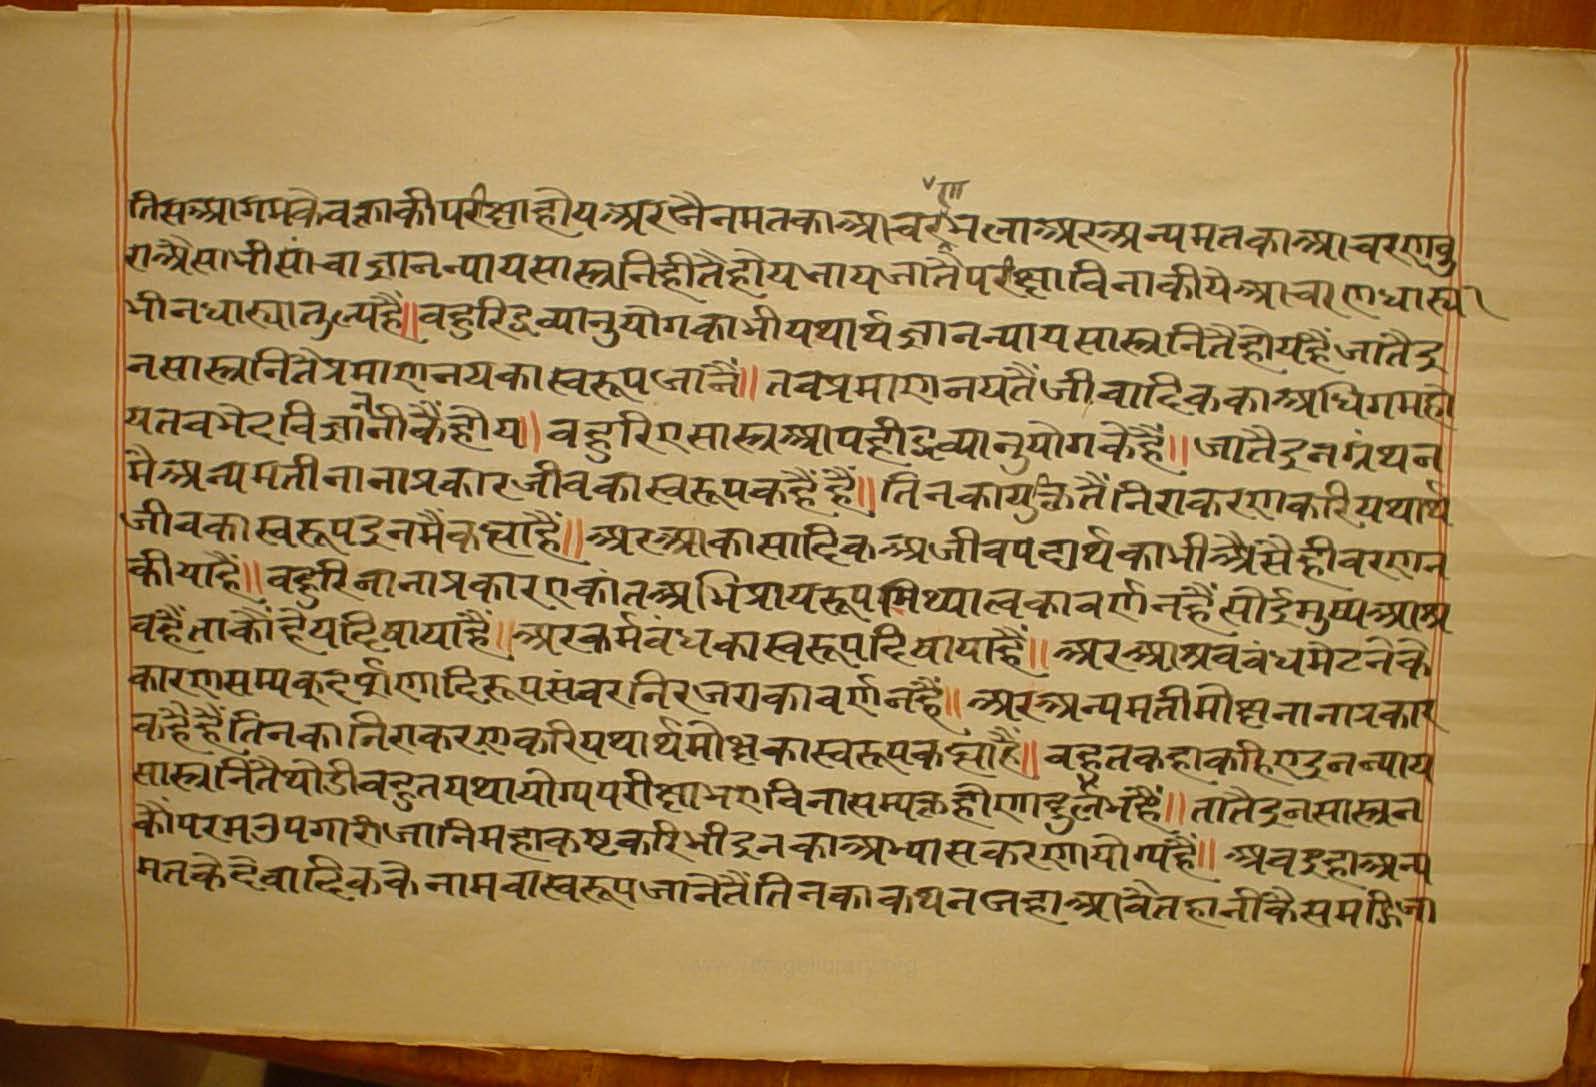 तिसआगमकेवक्ताकीपरीक्षाहोयअरजैनमतकाआचरणभलाअरअन्यमतकाआचरणवु
राअैसाभीसांचाज्ञानन्यायसास्त्रनिहीतैहोयजायजातैपरीक्षाविनाकीयेआचरणधास्या
भीनधास्यातुल्यहैं॥वहुरिद्रव्यानुयोगकाभीयथार्थज्ञानन्यायसास्त्रनितैहोयहैंजातैइ
नसास्त्रनितैप्रमाणनयकास्वरूपजानैं॥तवप्रमाणनयतैंजीवादिककाअधिगमहो
यतवभेदविज्ञाननीकैंहोय॥वहुरिएसास्त्रआपहीद्रव्यानुयोगकेहैं॥जातैइनग्रंथन
मैअन्यमतीनानाप्रकारजीवकास्वरूपकहैंहैं॥तिनकायुक्तितैंनिराकरणकरियथार्थ
जीवकास्वरूपइनमैंकह्याहैं॥अरआकासादिकअजीवपदार्थकाभीअैंसैहीवरणन
कीयाहैं॥वहुरिनानाप्रकारएकांतअभिप्रायरूपमिथ्यात्वकावर्णनहैंसोईमुख्यआश्र
वहैंताकौंहेयदिषायाहैं॥अरकर्मवंधकास्वरूपदिषायाहैं॥अरआश्रववंधमेटनेके
कारणसम्यकदर्षणादिरूपसंवरनिरजराकावर्णनहैं॥अरअन्यमतीमोक्षनानाप्रकार
कहैहैंतिनकानिराकरणकरियथार्थमोक्षकास्वरूपकह्याहैं॥वहुतकहाकहिएइनन्याय
सास्त्रनितैथोडीवहुतयथायोग्यपरीक्षाभएविनासम्यक्तहोणादुर्लभहैं॥तातैइनसास्त्रन
कौंपरमउपगारीजानिमहाकष्टकरिभीइनकाअभ्यासकरणायोग्यहैं॥अवइहाअन्य
मतकेदेवादिककेनामवास्वरूपजानेतैंतिनकाकथनजहाआवैतहानीकैसमझिजा